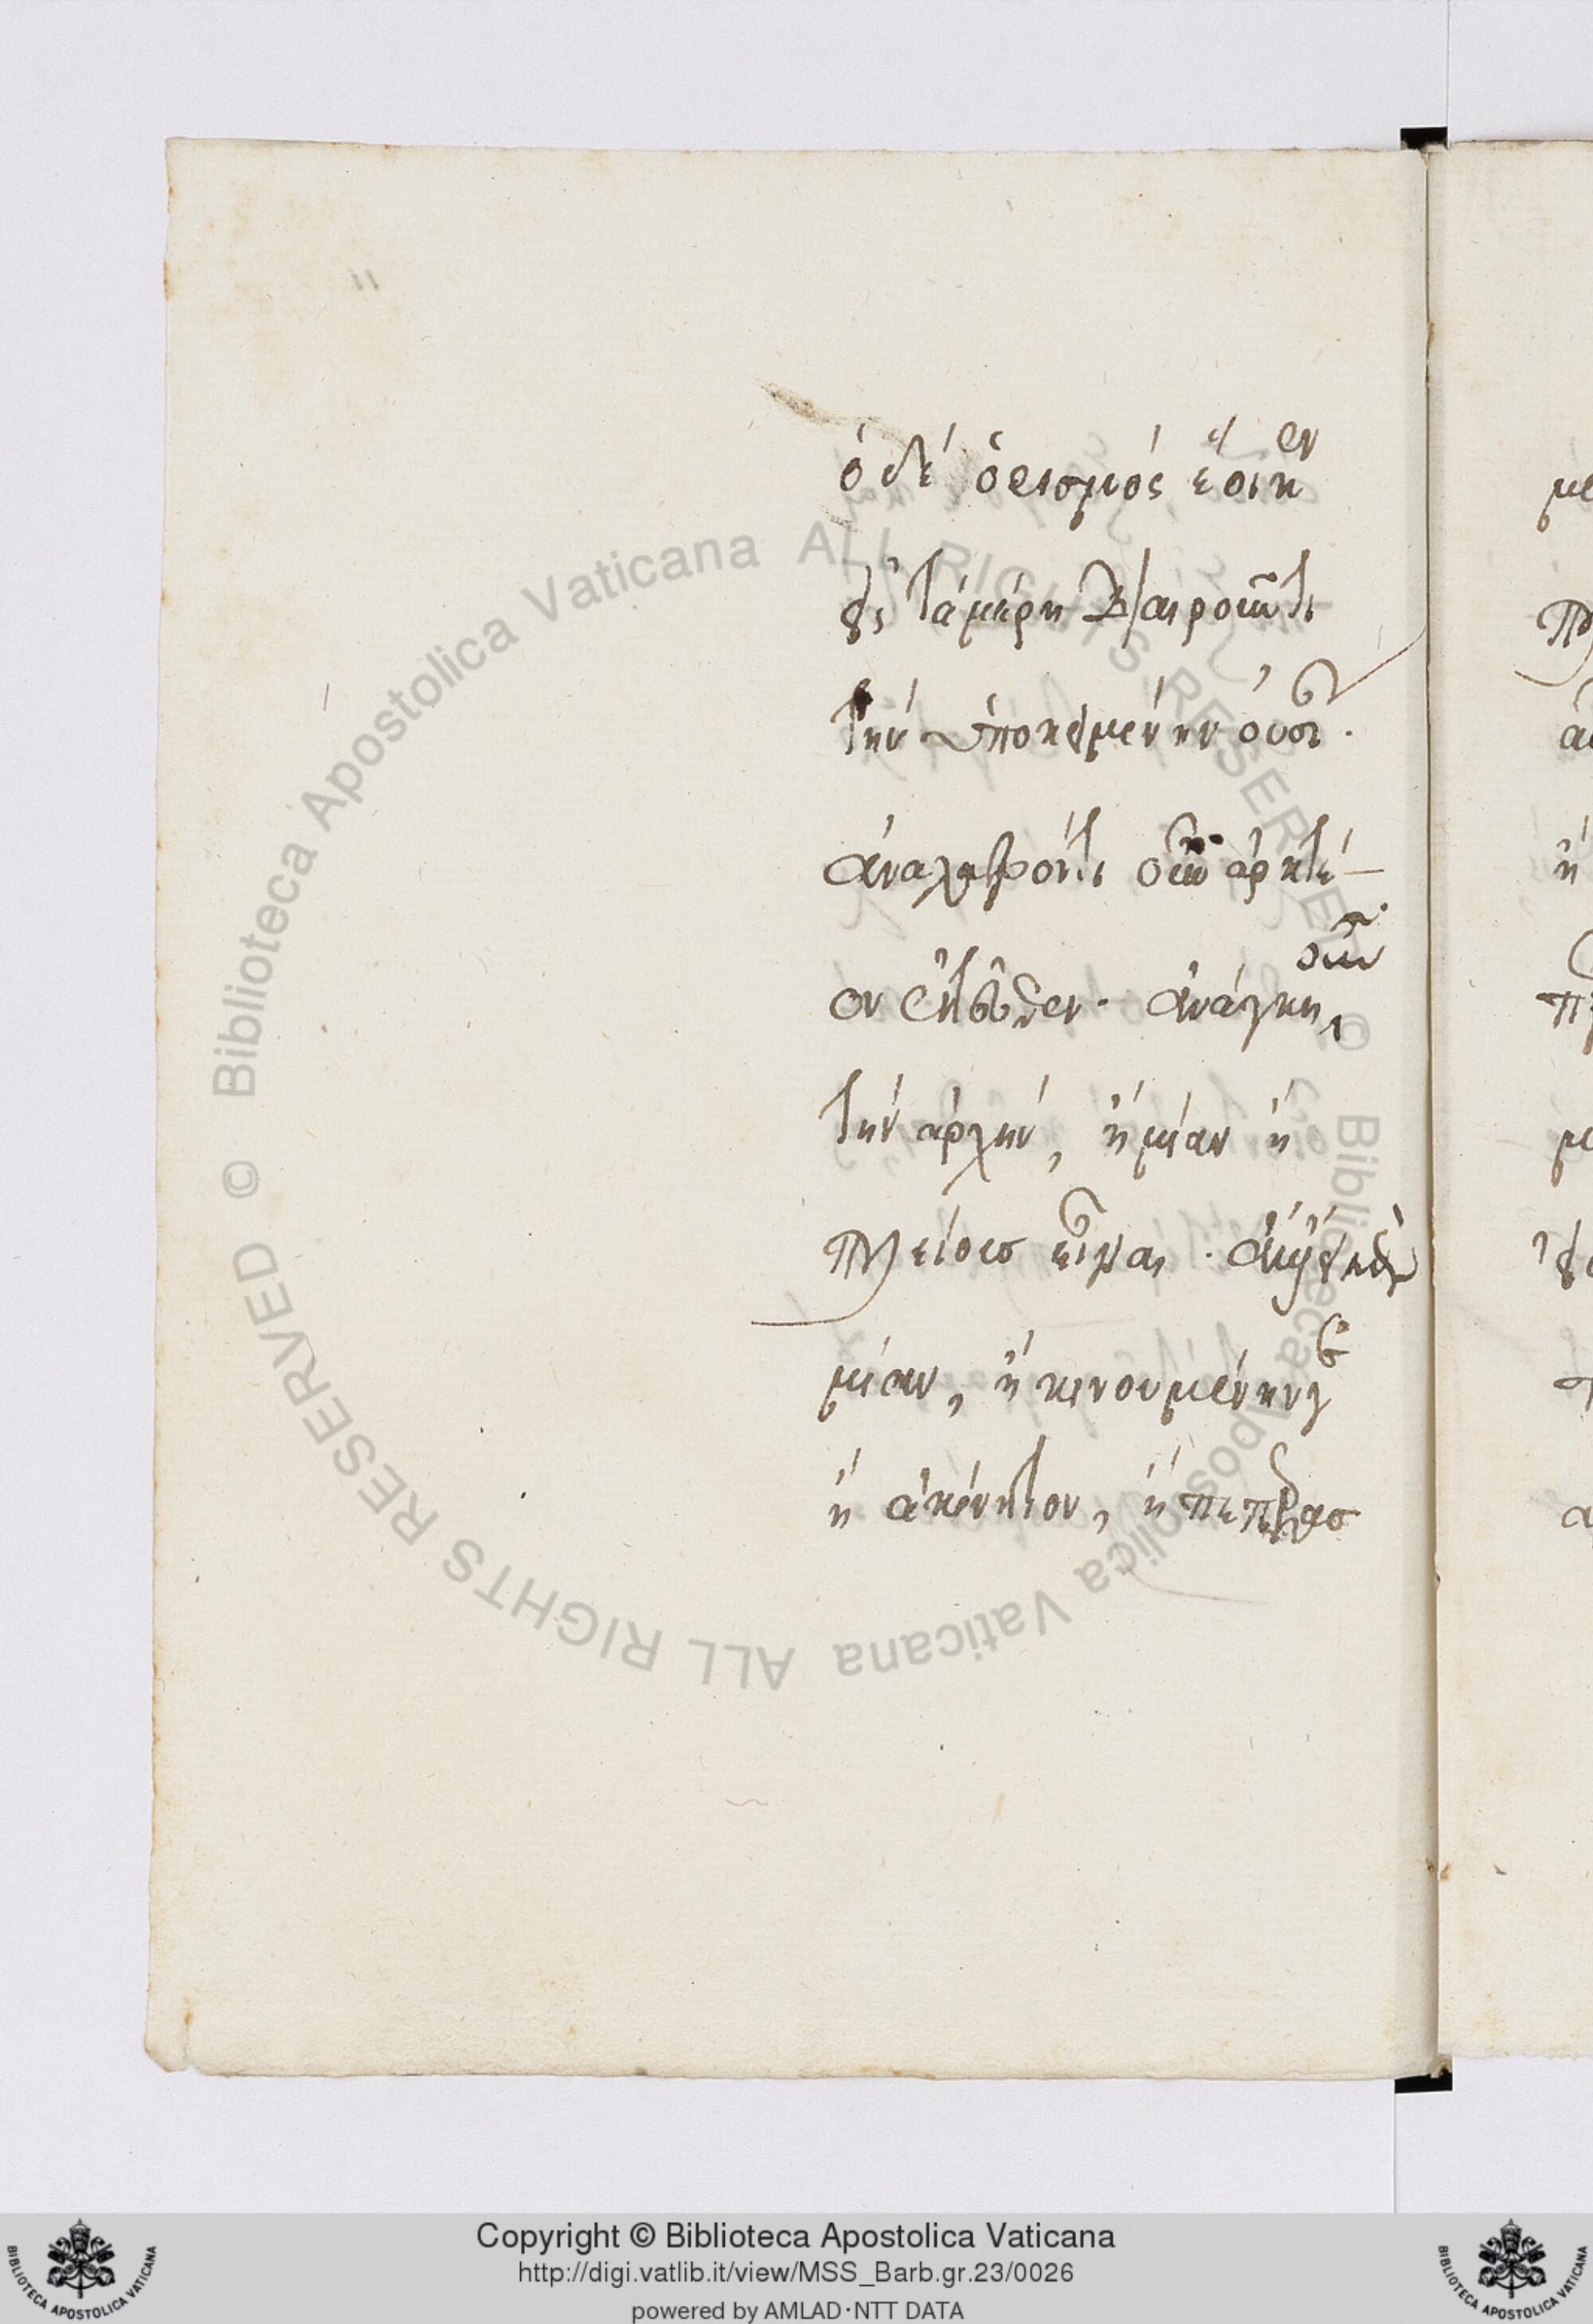 ὁ δὲ ὁρισμὸς ἔοικεν
εἰς τὰ μέρη διαιροῦντι
τὴν ὑποκειμένην οὐσίαν.
ἀναλαβόντι οὖν ἀρκτέ-
ον ἐντεῦθεν. ἀνάγκη οὖν
τὴν ἀρχήν, ἢ μίαν ἢ
πλείους εἶναι. ἀλλ' εἰ μὲν
μίαν, ἢ κινουμένην
ἢ ἀκίνητον, ἢ πεπερασ
με
ἢ
Copyright © Biblioteca Apostolica Vaticana
http://digi.vatlib.it/view/MSS_Barb.gr.23/0026
powered by AMLAD·NTT DATA
BIBLIOTECA APOSTOLICA VATICANA
BIBLIOTECA APOSTOLICA VATICANA
© Biblioteca Apostolica Vaticana ALL RIGHTS RESERVED
© Biblioteca Apostolica Vaticana ALL RIGHTS RESERVED